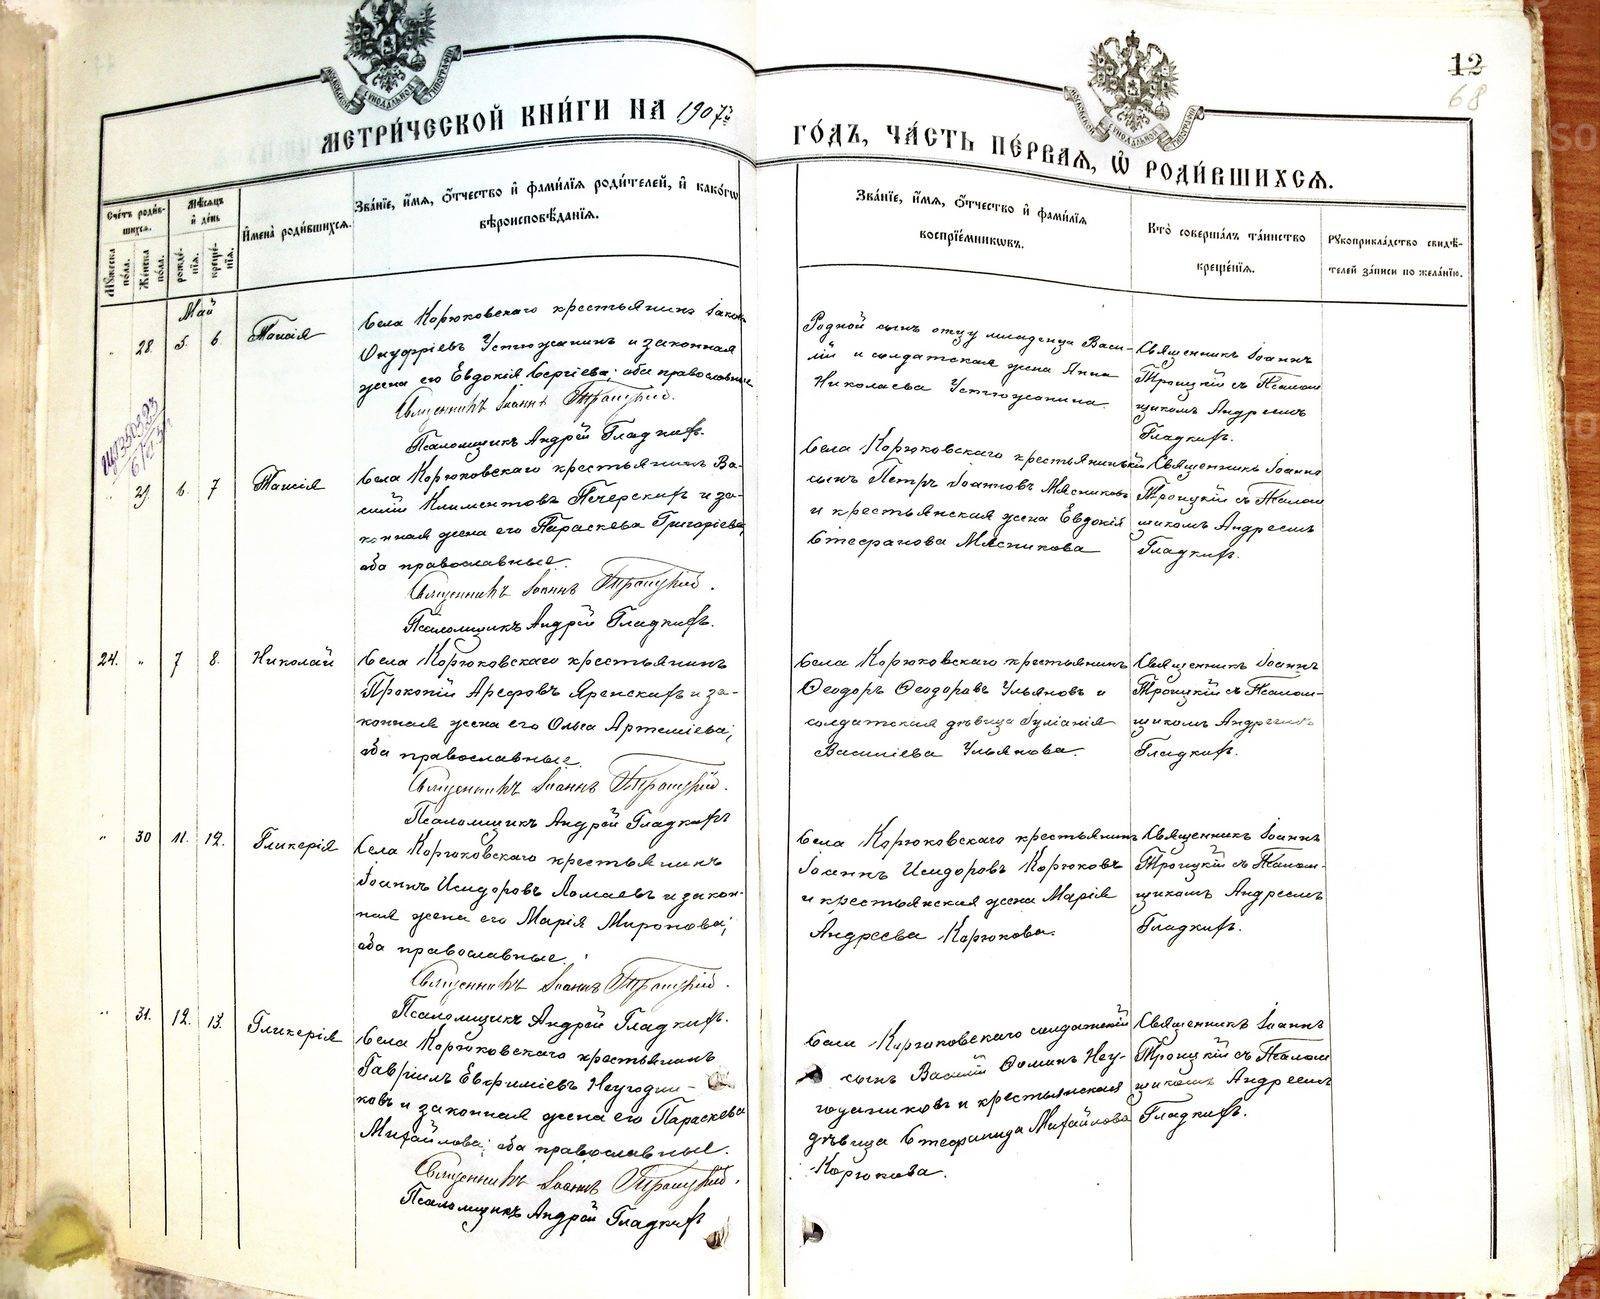 МОСКОВСКОЙ СѴНОДАЛЬНОЙ ТИПОГРАФІИ
МОСКОВСКОЙ СѴНОДАЛЬНОЙ ТИПОГРАФІИ
12
68
МЕТРИ́ЧЕСКОЙ КНИ́ГИ НА 1907й
ГО́ДЪ, ЧА́СТЬ ПЕ́РВАѦ, Ѡ҆ РОДИ́ВШИХСѦ.
Сче́тъ роди́в-
шихся.
Мꙋ́жеска по́ла.
Же́нска по́ла.
Мѣ́сяцъ
и҆ де́нь
рожде́-
нїя.
креще́-
нїя.
И҆мена̀ роди́вшихся.
Зва́нїе, и҆́мя, ѻ҆́тчество и҆ фами́лїя роди́телей, и҆ како́гѡ
вѣроисповѣ́данїя.
Зва́нїе, и҆́мя, ѻ҆́тчество и҆ фами́лїя
воспрїе́мникѡвъ.
Кто̀ соверша́лъ та́инство
креще́нїя.
Рꙋкоприкла́дство свидѣ́-
телей за́писи по жела́нїю.
Май
" 28. 5. 6. Таисія
Села Корюковскаго крестьянинъ Іаковъ
Онуфріевъ Устюжанинъ и законная
жена его Евдокія Сергіева; оба православные
Священникъ Іоаннъ Троицкій.
Псаломщикъ Андрей Гладкихъ.
Родной сынъ отцу младенца Васи-
лій и солдатская жена Анна
Николаева Устюжанина.
Священникъ Іоаннъ
Троицкій съ Псалом
щикомъ Андреемъ
Гладкихъ.
" 29. 6. 7 Таисія
Села Корюковскаго крестьянинъ Ва-
силій Климентовъ Печерскихъ и за-
конная жена его Параскева Григоріева,
оба православные.
Священникъ Іоаннъ Троицкій.
Псаломщикъ Андрей Гладкихъ.
Села Корюковскаго крестьянскій
сынъ Петръ Іоанновъ Мясниковъ
и крестьянская жена Евдокія
Стефанова Мясникова
Священникъ Іоаннъ
Троицкій съ Псалом
щикомъ Андреемъ
Гладкихъ.
24. " 7 8. Николай
Села Корюковскаго крестьянинъ
Прокопій Арефовъ Яренскихъ и за-
конная жена его Ольга Артеміева;
оба православные.
Священникъ Іоаннъ Троицкій.
Псаломщикъ Андрей Гладкихъ
Села Корюковскаго крестьянинъ
Ѳеодоръ Ѳеодоровъ Ульяновъ и
солдатская дѣвица Іуліанія
Василіева Ульянова.
Священникъ Іоаннъ
Троицкій съ Псалом-
щикомъ Андреемъ
Гладкихъ.
" 30 11. 12. Гликерія
Села Корюковскаго крестьянинъ
Іоаннъ Исидоровъ Ломаевъ и закон-
ная жена его Марія Миронова;
оба православные.
Священникъ Іоаннъ Троицкій.
Псаломщикъ Андрей Гладкихъ.
Села Корюковскаго крестьянинъ
Іоаннъ Исидоровъ Корюковъ
и крестьянская жена Марія
Андреева Корюкова.
Священникъ Іоаннъ
Троицкій съ Псалом-
щикомъ Андреемъ
Гладкихъ.
" 31. 12. 13. Гликерія
Села Корюковскаго крестьянинъ
Гавріилъ Евфиміевъ Неугодни-
ковъ и законная жена его Параскева
Михайлова; оба православные.
Священникъ Іоаннъ Троицкій.
Псаломщикъ Андрей Гладкихъ
Села Корюковскаго солдатскій
сынъ Василій Ѳоминъ Неу-
годниковъ и крестьянская
дѣвица Стефанида Михайлова
Корюкова.
Священникъ Іоаннъ
Троицкій съ Псалом
щикомъ Андреемъ
Гладкихъ.